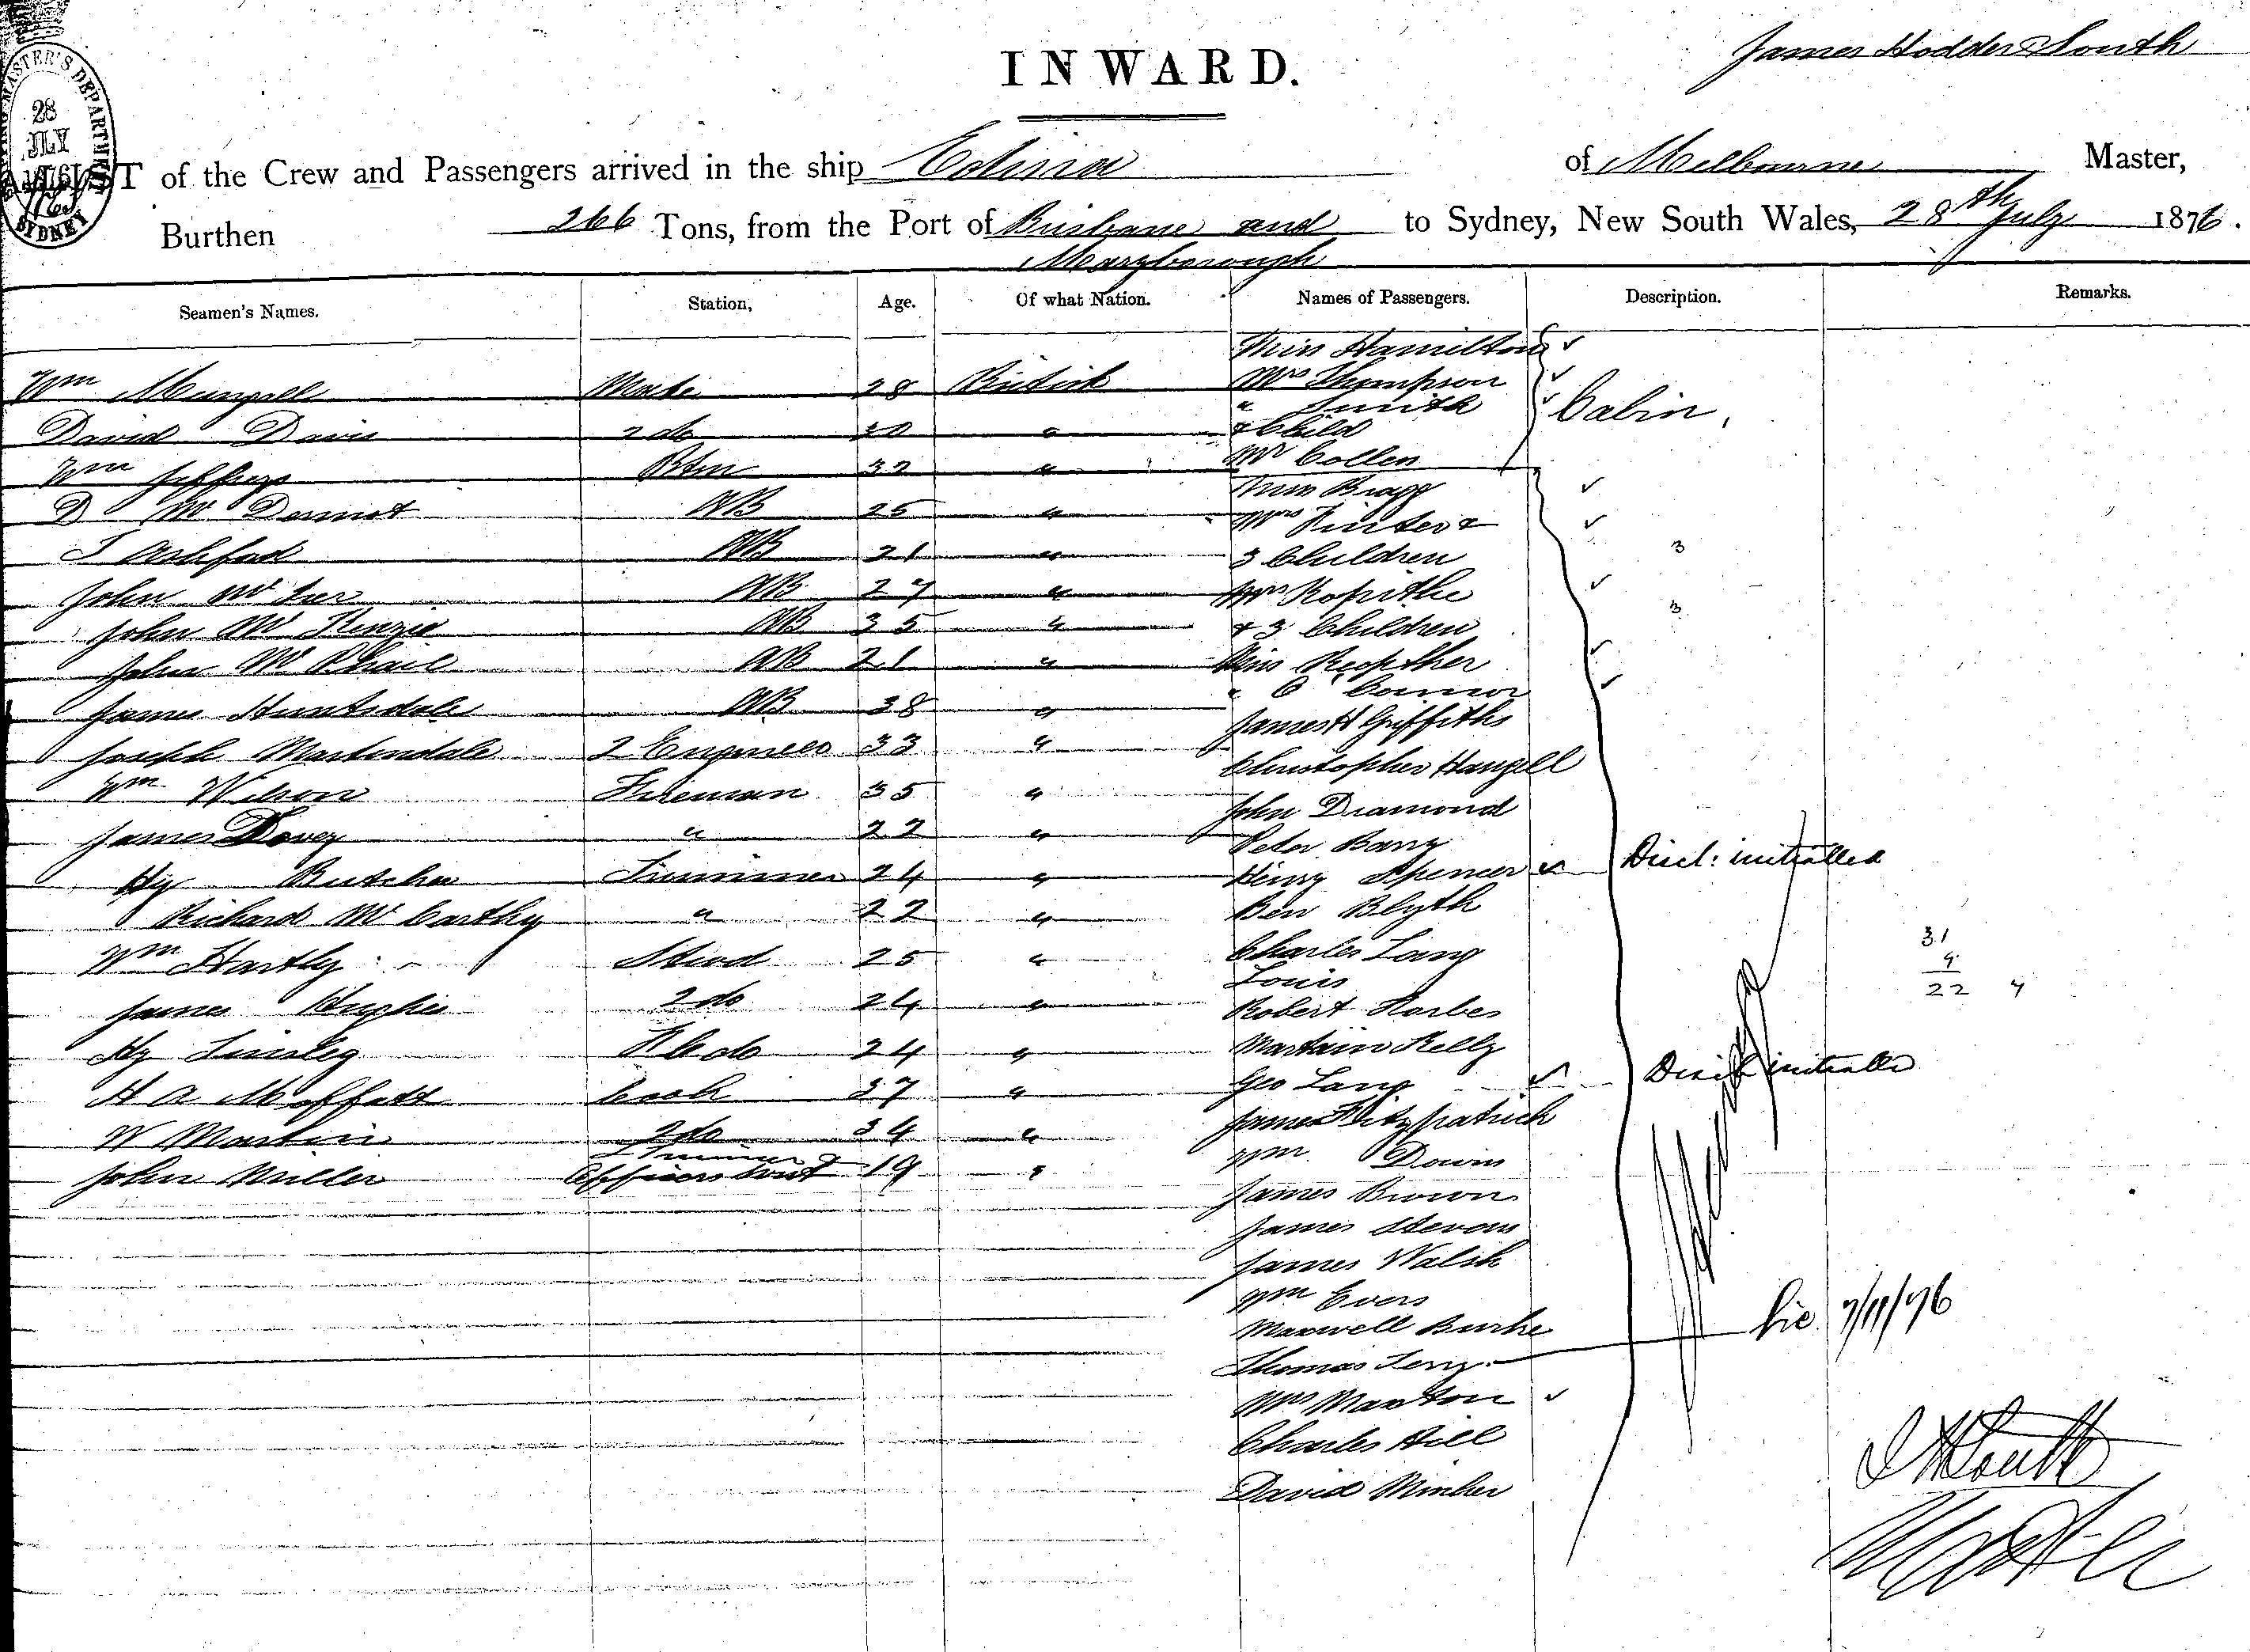 James Hodder South
INWARD.
MASTER'S DEPARTMENT
28
JLY
SYDNEY
LIST of the Crew and Passengers arrived in the ship Edina of Melbourne Master,
Burthen 266 Tons, from the Port of Brisbane and Maryborough to Sydney, New South Wales, 28th July 1876.
Seamen's Names. Station, Age. Of what Nation. Names of Passengers. Description. Remarks.
Miss Hamilton
Wm Mungall Mate 28 British Mrs Thompson
" Smith Cabin,
David Davis 2 do 30 " & Child
Wm Jeffreys Btsn 32 " Mr Collen
Miss Bragg
D Mc Dermot AB 25 " Mrs &
T Ashford AB 21 " 3 Children 3
John Mc AB 27 " Mrs
John McKenzie AB 35 " & 3 Children 3
John McPhail AB 21 " Miss
" O'Connor
James Huntsdale AB 38 " James H Griffiths
Joseph Martindale 2 Engineer 33 " Christopher
Wm Wilson Fireman 35 " John Diamond
James Dovey " 22 " Peter Barry
Hy Butcher Trimmer 24 " Henry Spencer Disch: initialled
Richard McCarthy " 22 " Ben Blyth
31
Wm Hartly Stwd 25 " Charles Lang 9
Louis
22 4
James Hughes 2 do 24 " Robert Forbes
Hy Tinsley F C do 24 " Martain Kelly
H A Moffatt Cook 37 " Geo Lang Disch initialled
James Fitzpatrick
W Martin 2 do 34 " Wm Downs
Trimmer &
John Miller Officers Servt 19 " James Brown
James
James Walsh
Wm Evers
Maxwell Burke
Thomas Terry 7/11/76
Mrs Manton
Charles Hill
David
J H South
Master